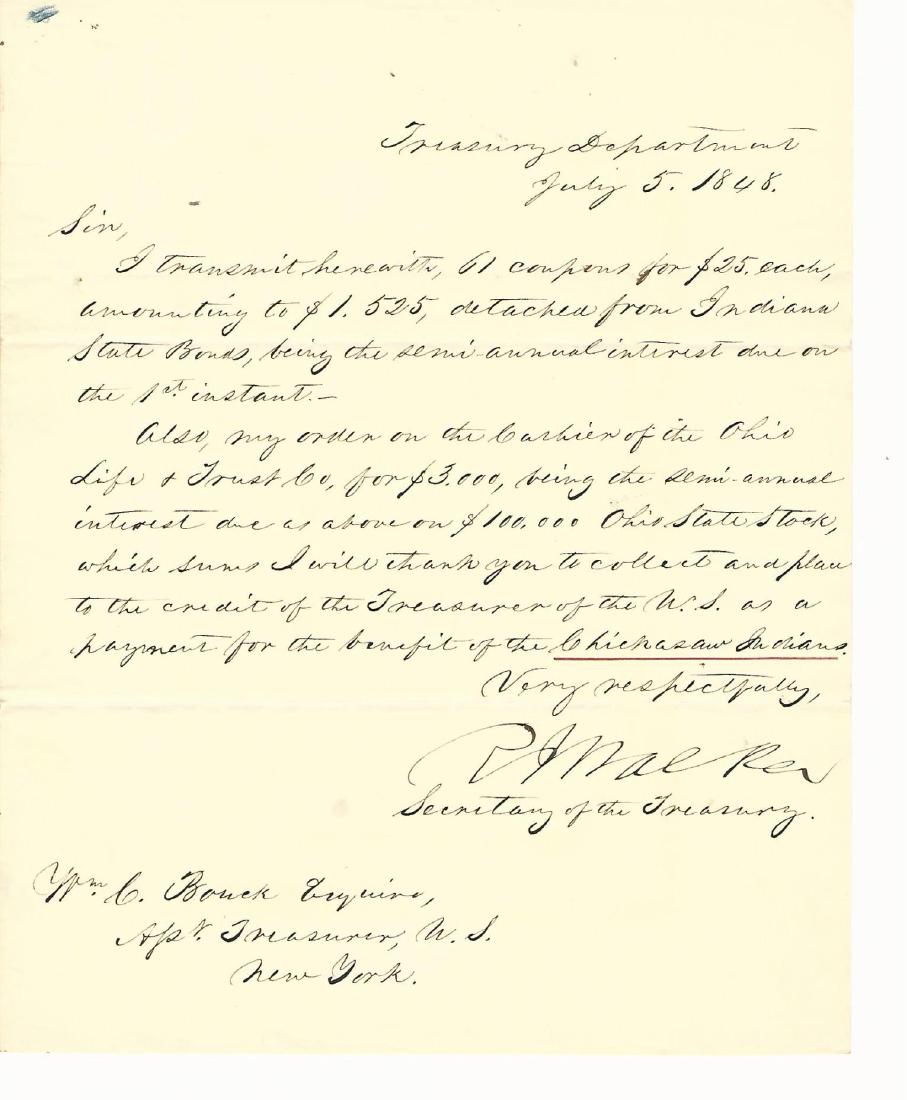 Treasury Department
July 5. 1848.
Sir,
I transmit herewith, 61 coupons for $25. each,
amounting to $1.525, detached from Indiana
State Bonds, being the semi-annual interest due on
the 1st. instant.—
Also, my order on the Cashier of the Ohio
Life & Trust Co, for $3.000, being the semi-annual
interest due as above on $100.000 Ohio State Stock,
which sums I will thank you to collect and place
to the credit of the Treasurer of the U.S. as a
payment for the benefit of the Chickasaw Indians.
Very respectfully,
R J Walker
Secretary of the Treasury.
Wm. C. Bouck Esquire,
Asst. Treasurer, U.S.
New York.